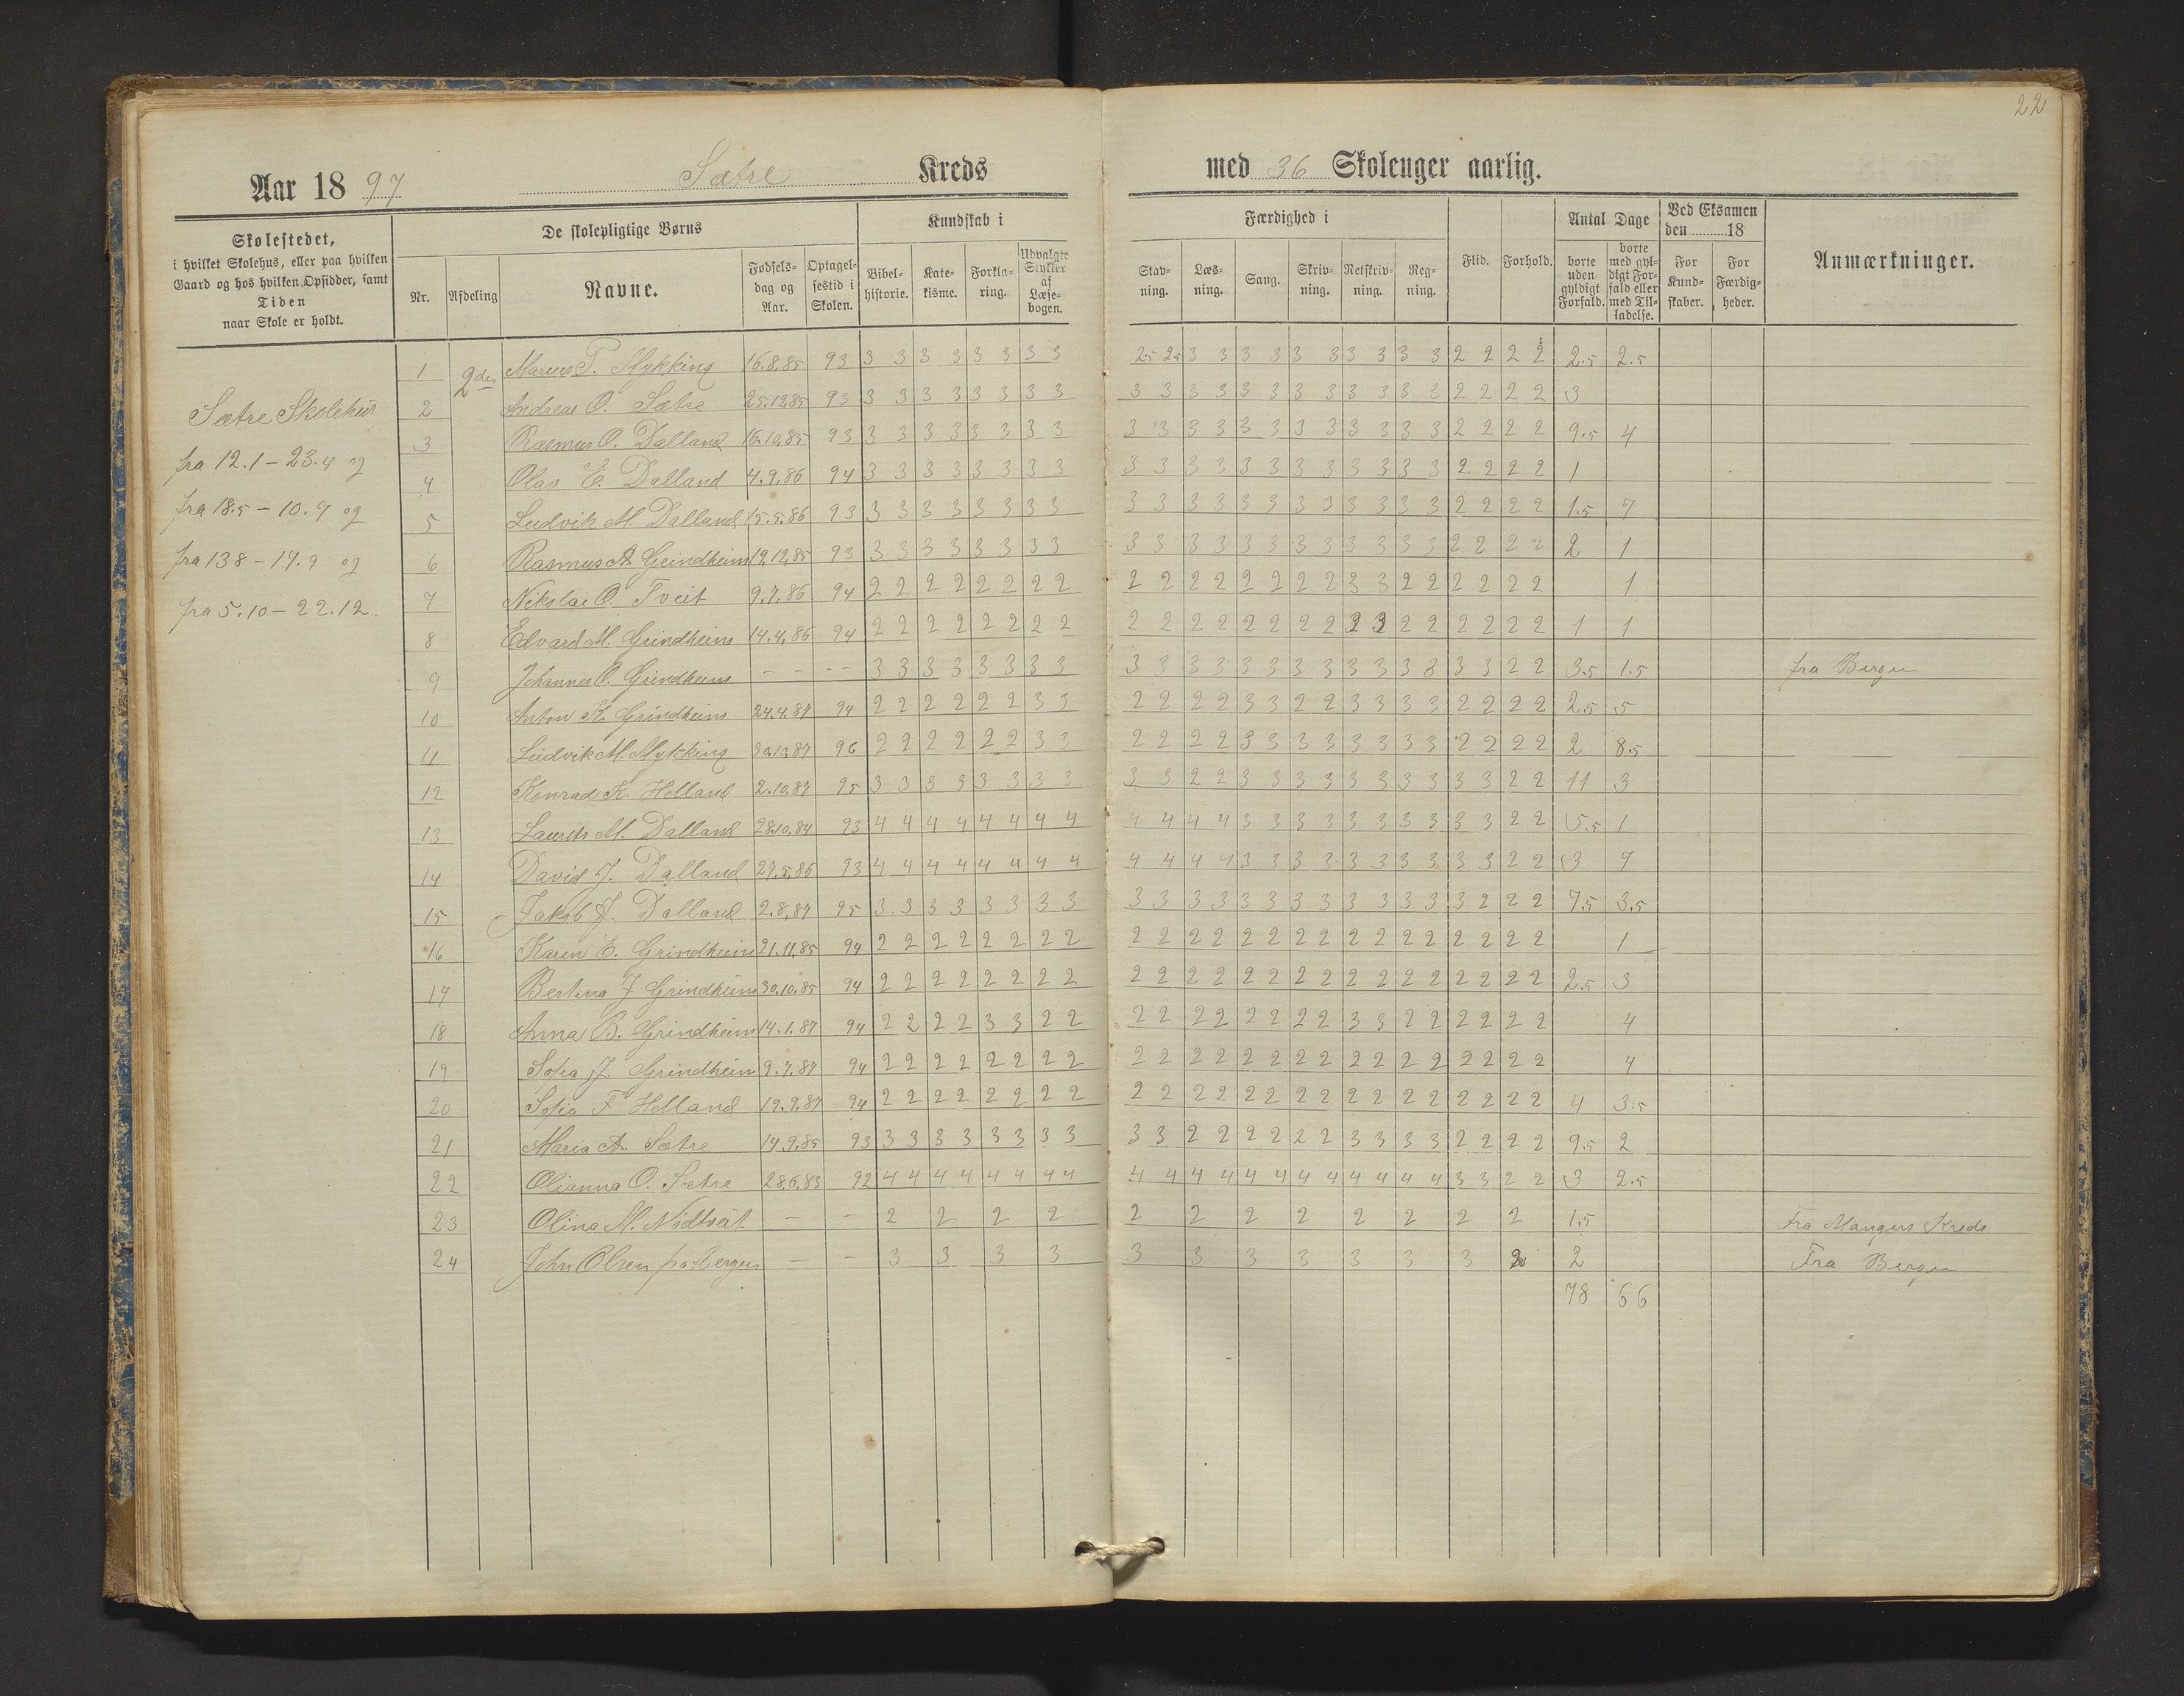 22
Aar 1897 Sætre Kreds med 36 Skoleuger aarlig.
Skolestedet, i hvilket Skolehus, eller paa hvilken Gaard og hos hvilken Opsidder, samt Tiden naar Skole er holdt.
De skolepligtige Børns
Nr. Afdeling Navne. Fødselsdag og Aar. Optagelsestid i Skolen.
Kundskab i
Bibelhistorie. Katekisme. Forklaring. Udvalgte Stykker af Læsebogen.
Færdighed i
Stavning. Læsning. Sang. Skrivning. Retskrivning. Regning.
Flid. Forhold.
Antal Dage
borte uden gyldigt Forfald. borte med gyldigt Forfald eller med Tilladelse.
Ved Eksamen den 18
For Kundskaber. For Færdigheder.
Anmærkninger.
Sætre Skolehus
fra 12.1 – 23.4 og
fra 18.5 – 10.7 og
fra 13.8 – 17.9 og
fra 5.10 – 22.12.
2den
1 Marius P. Mykking 16.8.85 93 3 3 3 3 3 3 3 3 2.5 2.5 3 3 3 3 3 3 3 3 3 3 2 2 2 2 2.5 2.5
2 Andreas O. Sætre 25.12.85 93 3 3 3 3 3 3 3 3 3 3 3 3 3 3 3 3 3 3 3 3 2 2 2 2 3
3 Rasmus O. Dalland 16.10.85 93 3 3 3 3 3 3 3 3 3 3 3 3 3 3 3 3 3 3 3 3 2 2 2 2 9.5 4
4 Olav E. Dalland 4.9.86 94 3 3 3 3 3 3 3 3 3 3 3 3 3 3 3 3 3 3 3 3 2 2 2 2 1
5 Ludvik M. Dalland 15.5.86 93 3 3 3 3 3 3 3 3 3 3 3 3 3 3 3 3 3 3 3 3 2 2 2 2 1.5 7
6 Rasmus A. Grindheim 19.12.85 93 3 3 3 3 3 3 3 3 3 3 3 3 3 3 3 3 3 3 3 3 2 2 2 2 2 1
7 Nikolai O. Tveit 9.7.86 94 2 2 2 2 2 2 2 2 2 2 2 2 2 2 2 2 3 3 2 2 2 2 2 2 1
8 Edvard M. Grindheim 14.4.86 94 2 2 2 2 2 2 2 2 2 2 2 2 2 2 2 2 2 3 2 2 2 2 2 2 1 1
9 Johannes O. Grindheim – – – – 3 3 3 3 3 3 3 3 3 3 3 3 3 3 3 3 3 3 3 3 3 3 2 2 3.5 1.5 fra Bergen
10 Anton K. Grindheim 24.4.87 94 2 2 2 2 2 2 3 3 2 2 2 2 3 3 2 2 3 3 3 3 2 2 2 2 2.5 5
11 Ludvik M. Mykking 30.10.87 96 2 2 2 2 2 2 3 3 2 2 2 2 3 3 3 3 3 3 3 3 2 2 2 2 2 8.5
12 Konrad K. Helland 2.10.87 95 3 3 3 3 3 3 3 3 3 3 2 2 3 3 3 3 3 3 3 3 3 3 2 2 11 3
13 Laurits M. Dalland 28.10.84 93 4 4 4 4 4 4 4 4 4 4 4 4 3 3 3 3 3 3 3 3 3 3 2 2 5.5 1
14 David J. Dalland 27.5.86 93 4 4 4 4 4 4 4 4 4 4 4 4 3 3 3 3 3 3 3 3 3 3 2 2 3 7
15 Jakob J. Dalland 2.8.87 95 3 3 3 3 3 3 3 3 3 3 3 3 3 3 3 3 3 3 3 3 3 2 2 2 7.5 3.5
16 Karen E. Grindheim 21.11.85 94 2 2 2 2 2 2 2 2 2 2 2 2 2 2 2 2 2 2 2 2 2 2 2 2 1
17 Bertina J Grindheim 30.10.85 94 2 2 2 2 2 2 2 2 2 2 2 2 2 2 2 2 2 2 2 2 2 2 2 2 2.5 3
18 Anna B. Grindheim 14.1.87 94 2 2 2 2 3 3 2 2 2 2 2 2 2 2 2 2 3 3 2 2 2 2 2 2 4
19 Sofia J. Grindheim 9.7.87 94 2 2 2 2 2 2 2 2 2 2 2 2 2 2 2 2 2 2 2 2 2 2 2 2 4
20 Sofia F Helland 19.9.87 94 2 2 2 2 2 2 2 2 2 2 2 2 2 2 2 2 2 2 2 2 2 2 2 2 4 3.5
21 Maria A. Sætre 14.9.85 93 3 3 3 3 3 3 3 3 3 3 2 2 2 2 2 2 3 3 3 3 2 2 2 2 9.5 2
22 Olianna O. Sætre 28.6.83 92 4 4 4 4 4 4 4 4 4 4 4 4 4 4 4 4 4 4 4 4 3 3 2 2 3 2.5
23 Olina M. Nødtveit – – 2 2 2 2 2 2 2 2 2 2 2 2 1.5 Fra Mangers Kreds
24 John Olsen fra Bergen – – 3 3 3 3 3 3 3 3 3 3 3 2 2 Fra Bergen
78 66